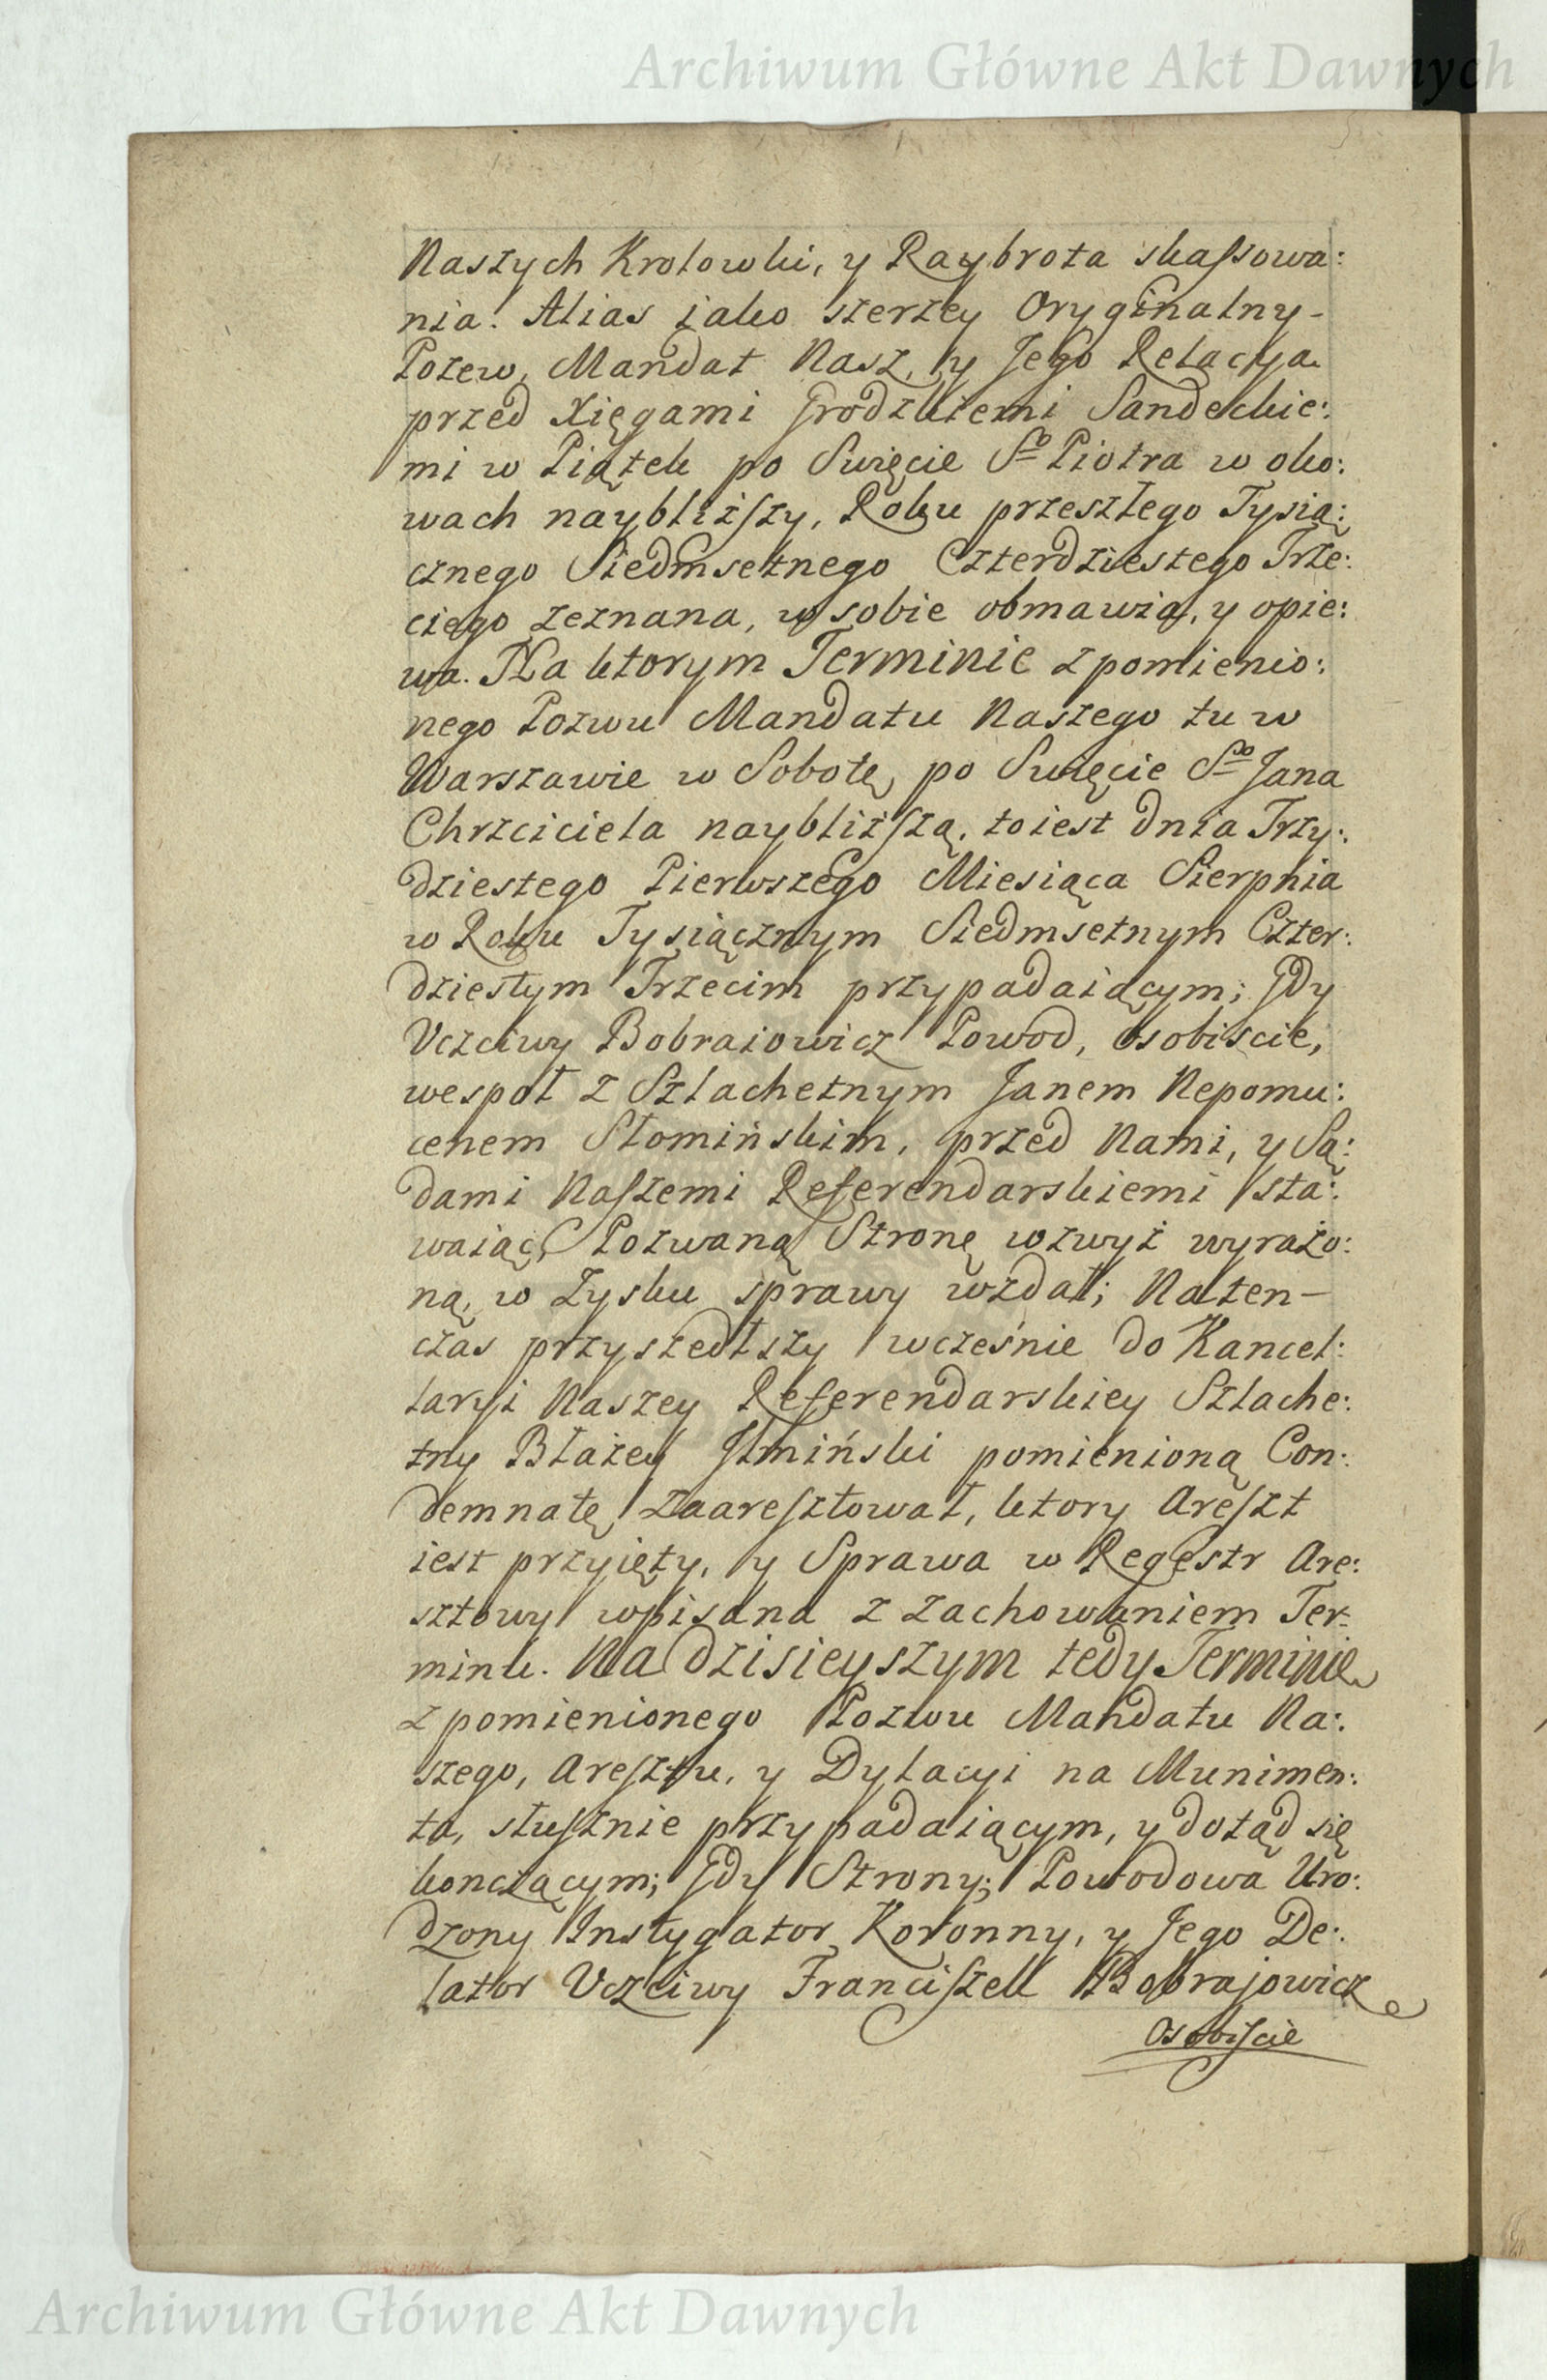 Archiwum Główne Akt Dawnych
Naszych Krolowki, y Raybrota skassowa:
nia. Alias jako szerzey Oryginalny-
Pozew, Mandat Nasz, y Jego Relacya
przed Xięgami Grodzkiemi Sandeckie:
mi w Piątek po Swięcie Sgo Piotra w oko:
wach naybliższy, Roku przeszłego Tysią:
cznego Siedmsetnego Czterdziestego Trze:
ciego zeznana, w sobie obmawia, y opie:
wa. Na ktorym Terminie z pomienio:
nego Pozwu Mandatu Naszego tu w
Warszawie w Sobotę, po Swięcie Sgo Jana
Chrzciciela naybliższą, to iest dnia Trzy:
dziestego Pierwszego Miesiąca Sierpnia
w Roku Tysiącznym Siedmsetnym Czter:
dziestym Trzecim przypadaiącym; Gdy
Uczciwy Bobraiowicz Powod, osobiscie,
wespoł z Szlachetnym Janem Nepomu:
cenem Słomińskim, przed Nami, y Są:
dami Naszemi Referendarskiemi sta:
waiąc, Pozwaną Stronę wzwyż wyrażo:
ną, w Zysku sprawy wzdał; Na ten-
czas przyszedłszy wcześnie do Kancel:
laryi Naszey Referendarskiey Szlache:
tny Błażey Ilmiński pomienioną Con:
demnatę, zaaresztował, ktory Areszt
iest przyięty, y Sprawa w Regestr Are:
sztowy wpisana z zachowaniem Ter=
minu. Na dzisieyszym tedy Terminie
z pomienionego Pozwu Mandatu Na:
szego, Aresztu, y Dylacyi na Munimen:
ta, słusznie przypadaiącym, y dotąd się
konczącym; Gdy Strony; Powodowa Uro:
dzony Instygator Koronny, y Jego De:
lator Uczciwy Franciszek Bobrajowicz
Osobiscie
Archiwum Główne Akt Dawnych